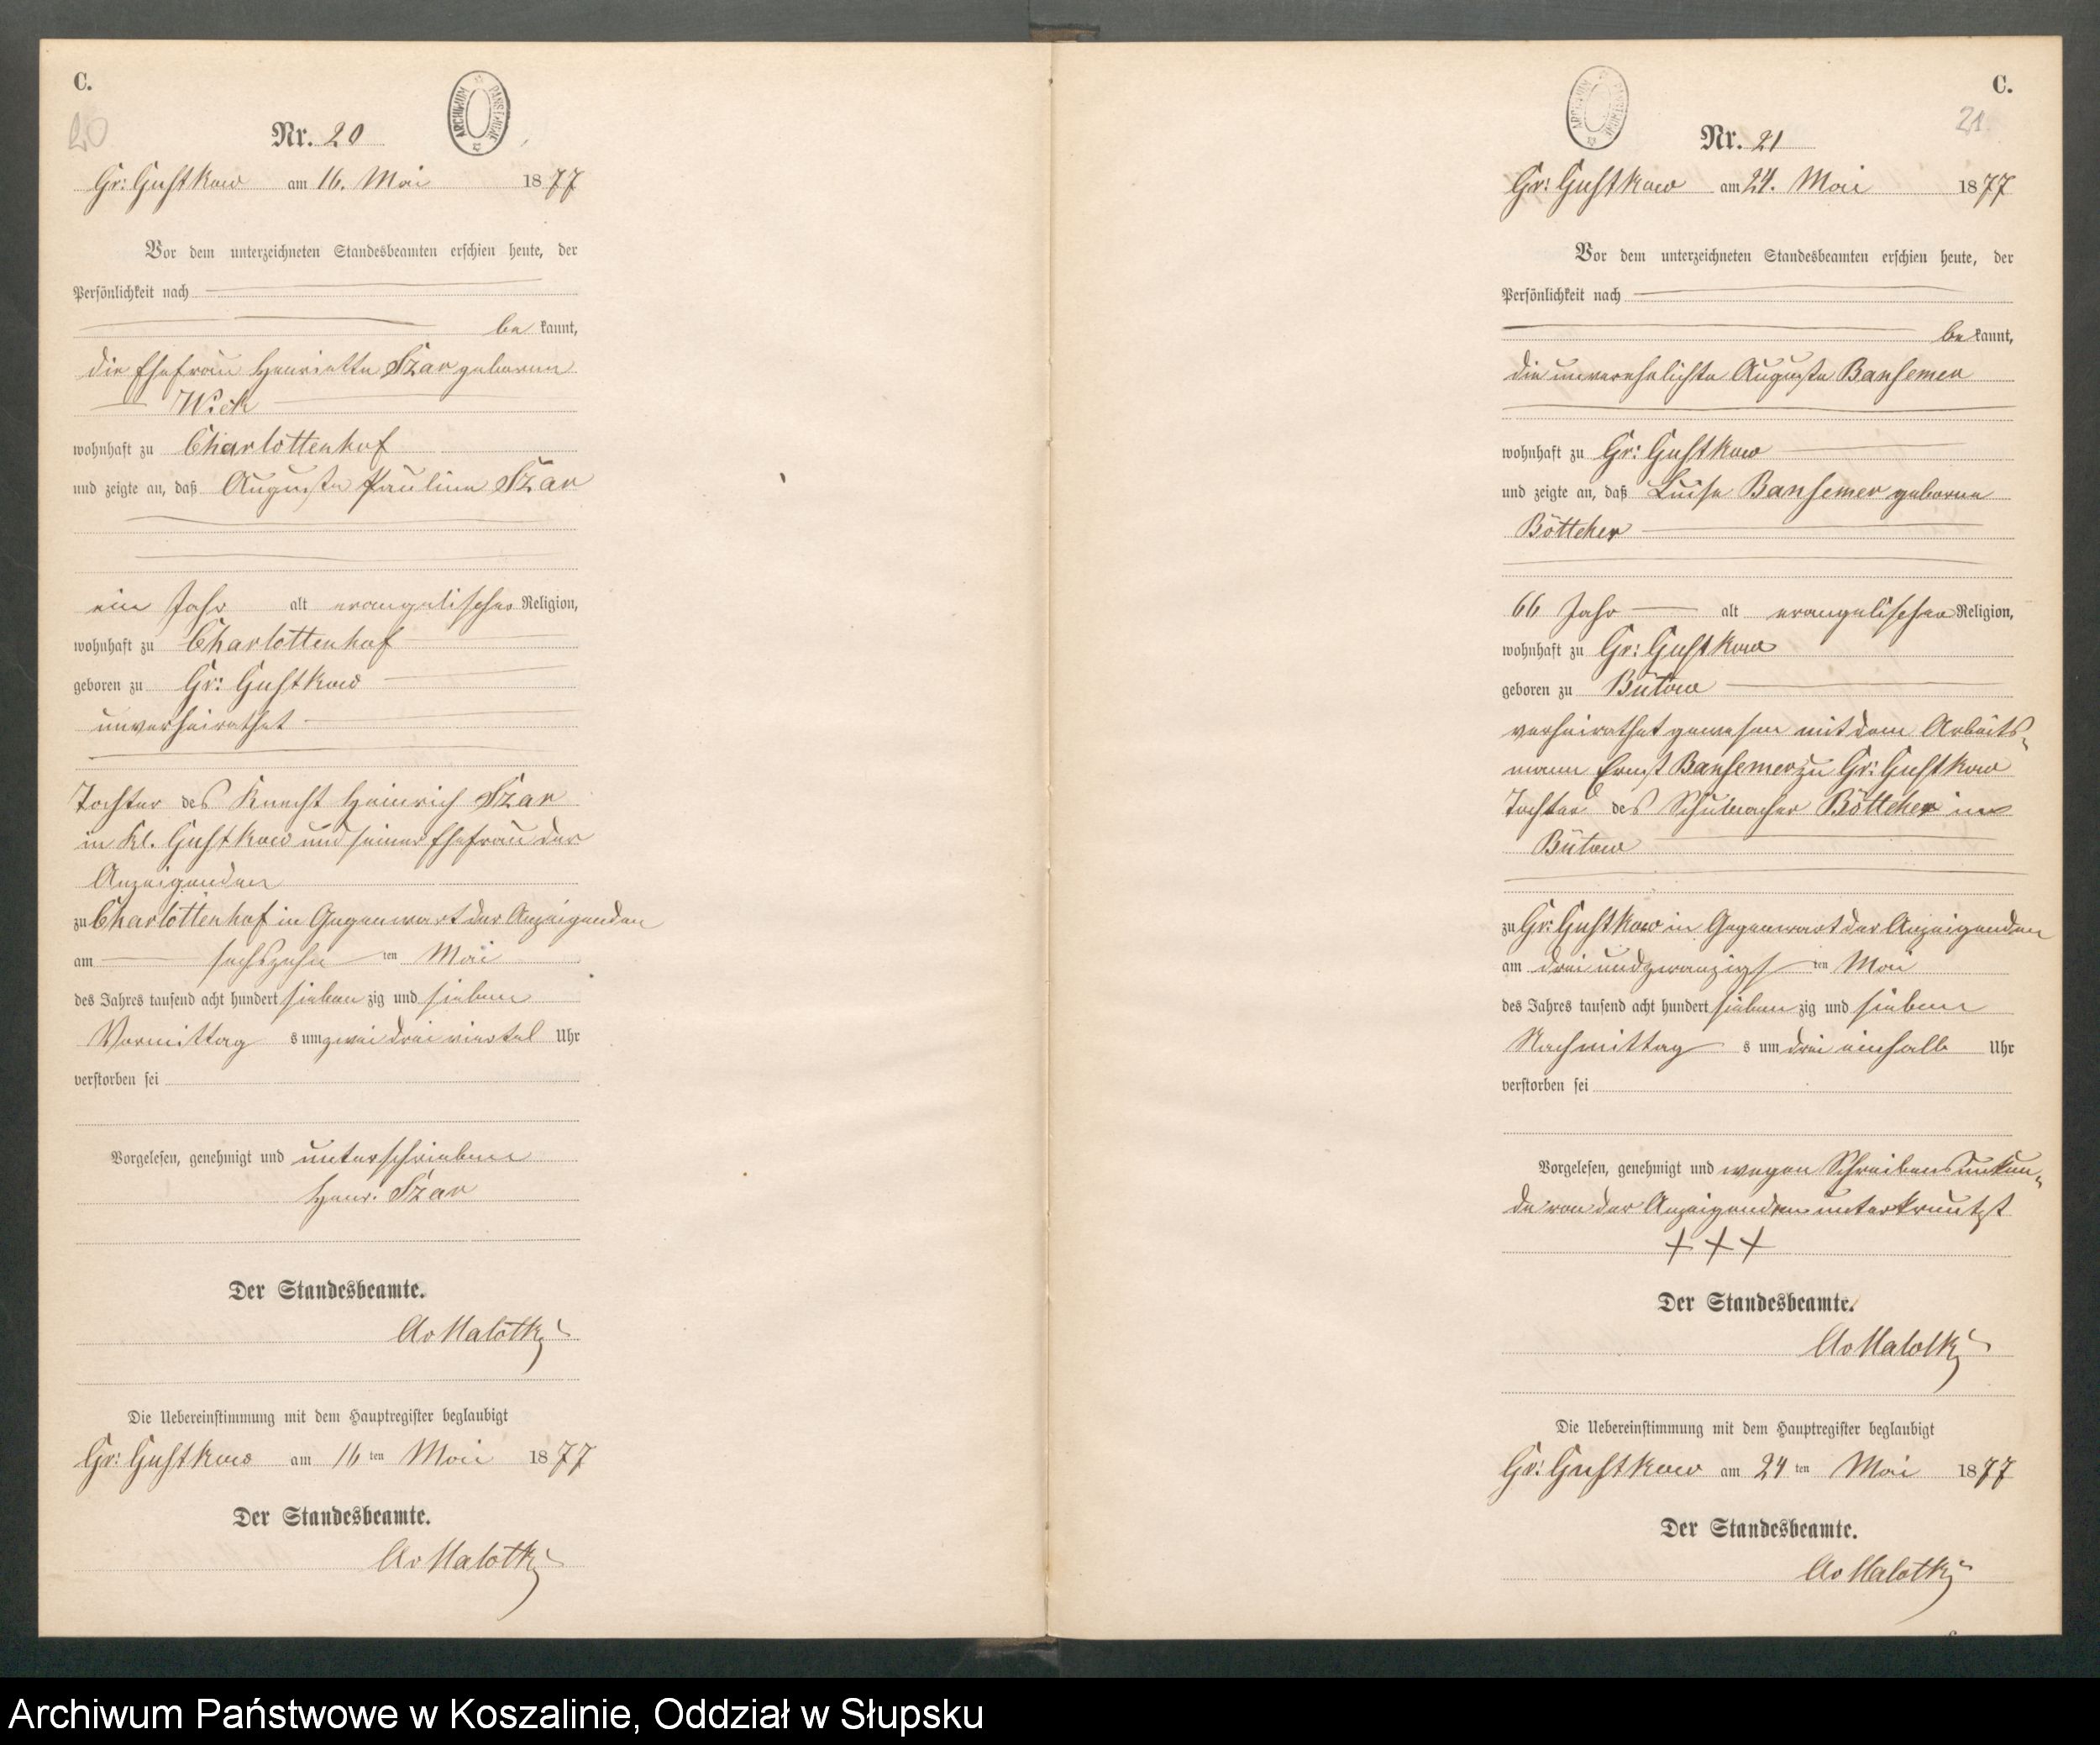 C.
20
ARCHIWUM PAŃSTWOWE
Nr. 20
Gr: Gustkow am 16. Mai 1877
Vor dem unterzeichneten Standesbeamten erschien heute, der
Persönlichkeit nach
be kannt,
die Ehefrau Henriette Szar geborene
Wick
wohnhaft zu Charlottenhof
und zeigte an, daß Auguste Pauline Szar
ein Jahr alt evangelischer Religion,
wohnhaft zu Charlottenhof
geboren zu Gr: Gustkow
unverheirathet
Tochter des Knecht Heinrich Szar
in Kl. Gustkow und seiner Ehefrau der
Anzeigenden
zu Charlottenhof in Gegenwart der Anzeigenden
am sechszehn ten Mai
des Jahres tausend acht hundert sieben zig und sieben
Vormittag s um zwei drei viertel Uhr
verstorben sei
Vorgelesen, genehmigt und unterschrieben
Henr. Szar
Der Standesbeamte.
AvMalottki
Die Uebereinstimmung mit dem Hauptregister beglaubigt
Gr: Gustkow am 16 ten Mai 1877
Der Standesbeamte.
AvMalottki
C.
21
ARCHIWUM PAŃSTWOWE
Nr. 21
Gr: Gustkow am 24. Mai 1877
Vor dem unterzeichneten Standesbeamten erschien heute, der
Persönlichkeit nach
be kannt,
die unverehelichte Auguste Bansemer
wohnhaft zu Gr: Gustkow
und zeigte an, daß Luise Bansemer geborne
Böttcher
66 Jahr alt evangelischer Religion,
wohnhaft zu Gr: Gustkow
geboren zu Bütow
verheirathet gewesen mit dem Arbeits-
mann Ernst Bansemer zu Gr: Gustkow
Tochter des Schumacher Böttcher in
Bütow
zu Gr: Gustkow in Gegenwart der Anzeigenden
am drei und zwanzigs ten Mai
des Jahres tausend acht hundert sieben zig und sieben
Nachmittag s um drei einhalb Uhr
verstorben sei
Vorgelesen, genehmigt und wegen Schreibensunkun-
de von der Anzeigenden unterkreutzt
+++
Der Standesbeamte.
AvMalottki
Die Uebereinstimmung mit dem Hauptregister beglaubigt
Gr: Gustkow am 24 ten Mai 1877
Der Standesbeamte.
AvMalottki
Archiwum Państwowe w Koszalinie, Oddział w Słupsku